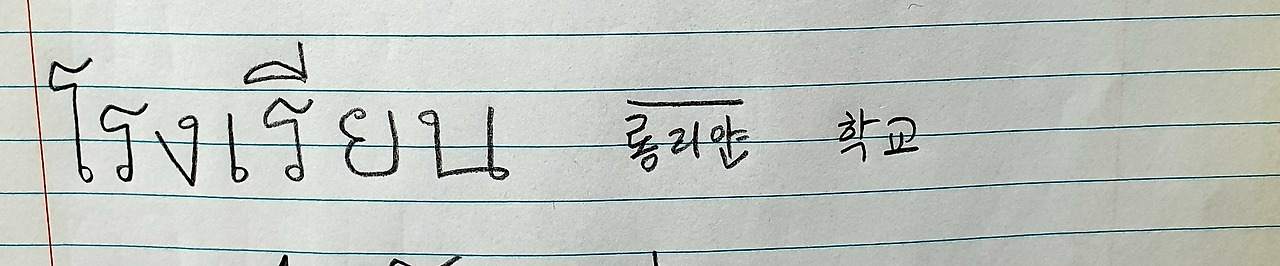 โรงเรียน 롱리얀 학교